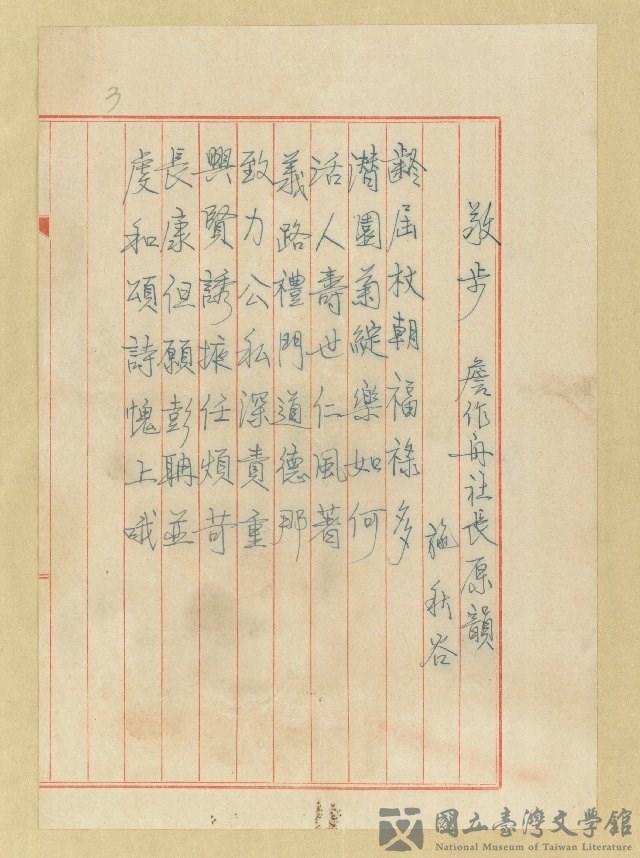 3
敬步 詹作舟社長原韻
施秋谷
齡屆杖朝福祿多
潛園菊綻樂如何
活人壽世仁風著
義路禮門道德那
致力公私深責重
興賢誘掖任煩苛
長康但願彭聃並
虔和頌詩愧上哦
國立臺灣文學館
National Museum of Taiwan Literature